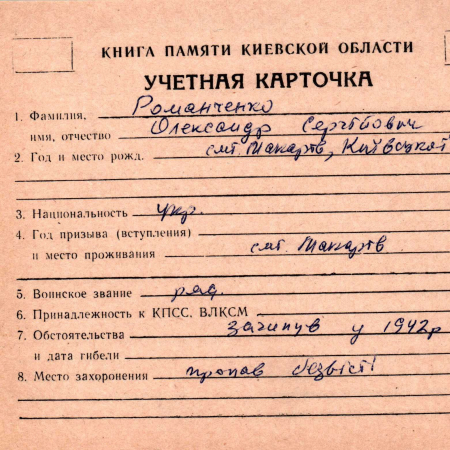 КНИГА ПАМЯТИ КИЕВСКОЙ ОБЛАСТИ
УЧЕТНАЯ КАРТОЧКА
1. Фамилия, Романченко
имя, отчество Олександр Сергійович
2. Год и место рожд. смт. Макарів, Київської
3. Национальность укр.
4. Год призыва (вступления)
и место проживания смт. Макарів
5. Воинское звание ряд.
6. Принадлежность к КПСС, ВЛКСМ
7. Обстоятельства загинув у 1942 р
и дата гибели
8. Место захоронения пропав безвісті